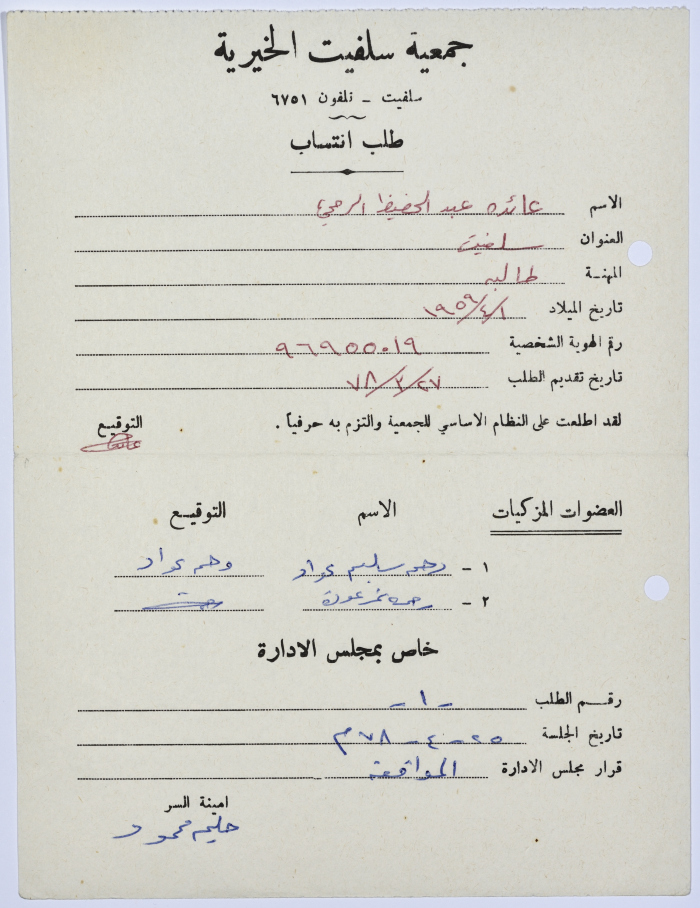 جمعية سلفيت الخيرية
سلفيت - تلفون ٦٧٥١
طلب انتساب
الاسم عائده عبد الحفيظ
العنوان سلفيت
المهنة طالبه
تاريخ الميلاد ١/٤/١٩٥٩
رقم الهوية الشخصية ٩٦٩٥٥٠١٩
تاريخ تقديم الطلب ٢٧/٣/٧٨
لقد اطلعت على النظام الاساسي للجمعية والتزم به حرفياً . التوقيع
العضوات المزكيات الاسم التوقيع
١ - سليم عواد عواد
٢ -
خاص بمجلس الادارة
رقم الطلب - ١ -
تاريخ الجلسة ٢٥ - ٤ - ٧٨ م
قرار مجلس الادارة الموافقة
امينة السر
حليمه محمود